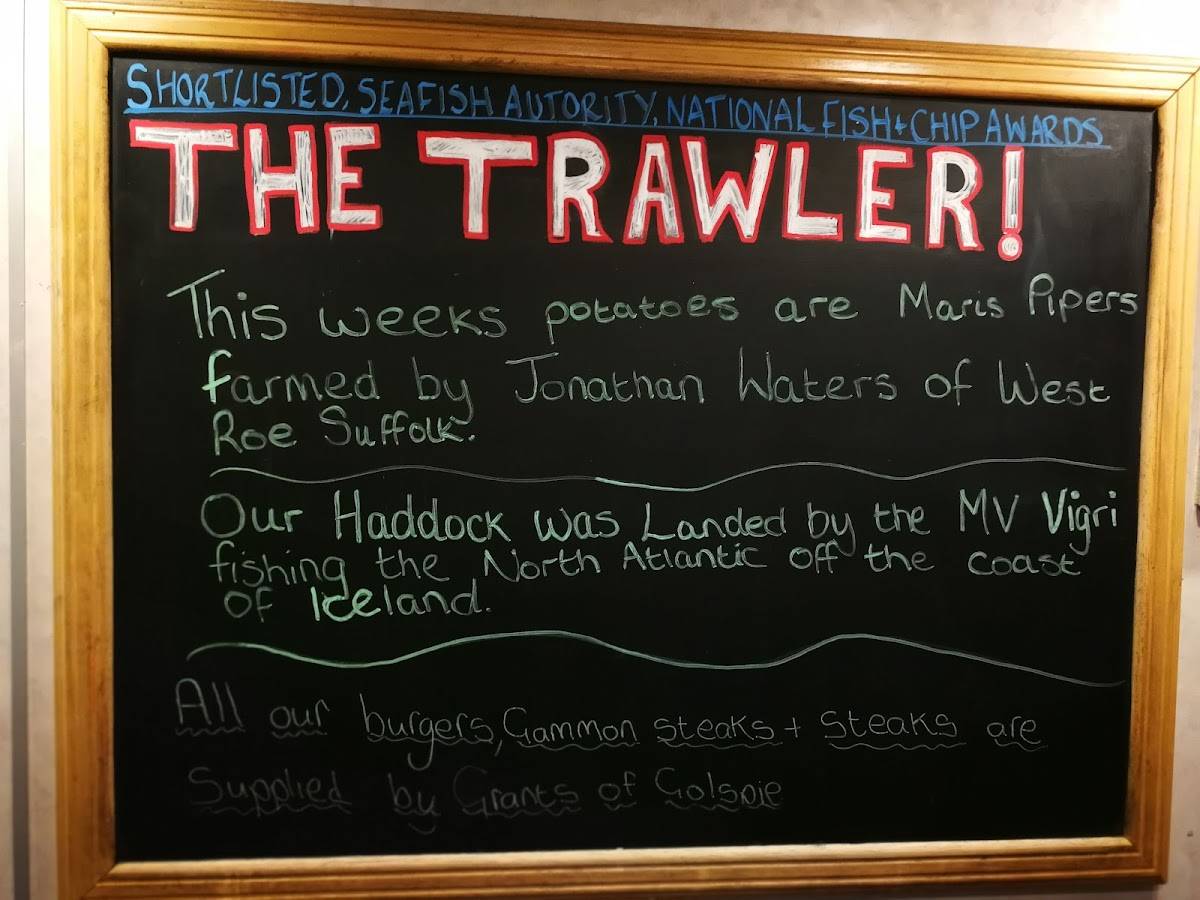 SHORTLISTED, SEAFISH AUTORITY, NATIONAL FISH + CHIP AWARDS
THE TRAWLER!
This weeks potatoes are Maris Pipers
farmed by Jonathan Waters of West
Roe Suffolk.
Our Haddock was Landed by the MV Vigri
fishing the North Atlantic off the coast
of Iceland.
All our burgers, Gammon steaks + steaks are
Supplied by Grants of Golspie